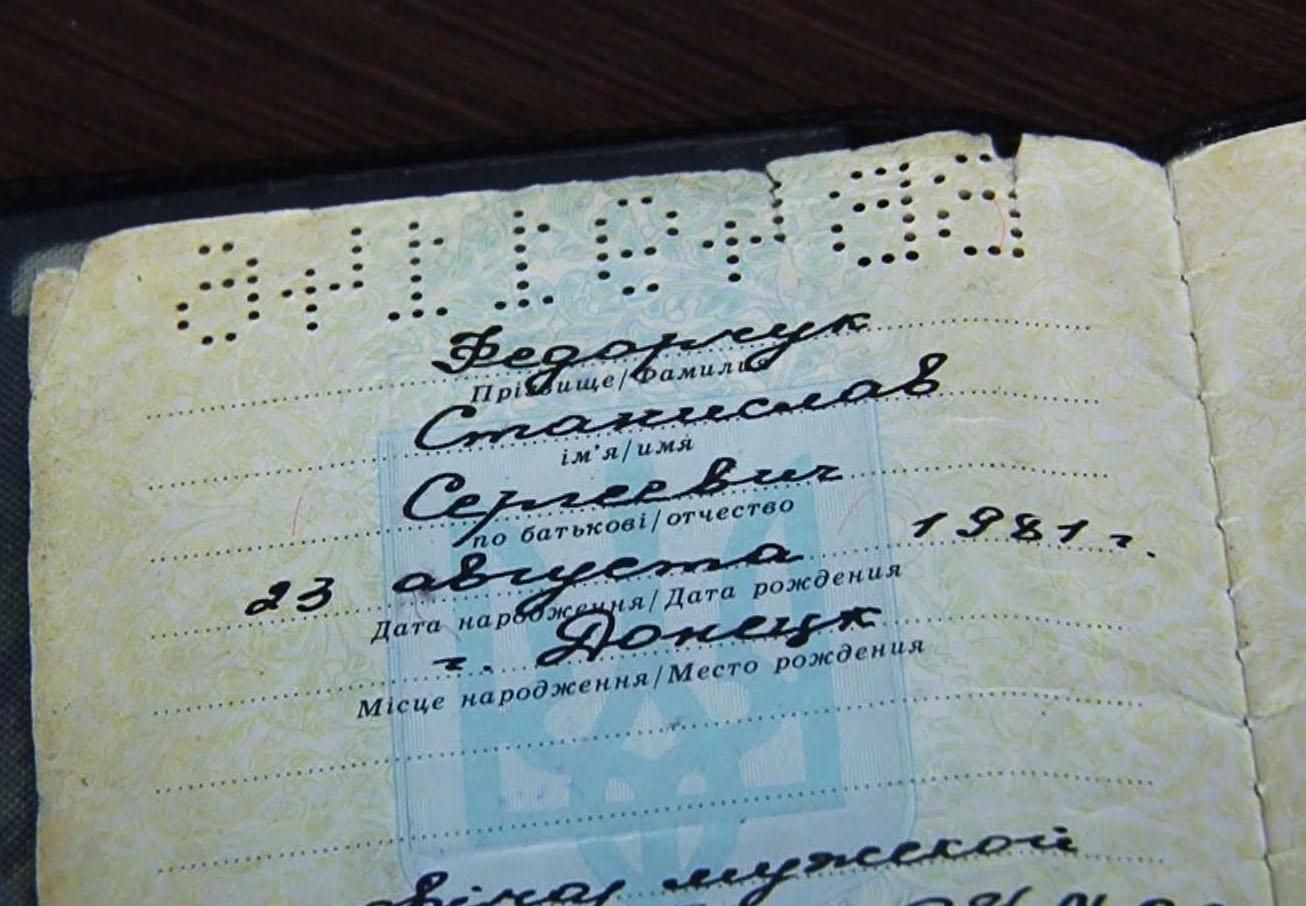 Федорчук
Прізвище/Фамилия
Станислав
ім'я/имя
Сергеевич
по батькові/отчество
23 августа 1981 г.
Дата народження/Дата рождения
г. Донецк
Місце народження/Место рождения
мужской